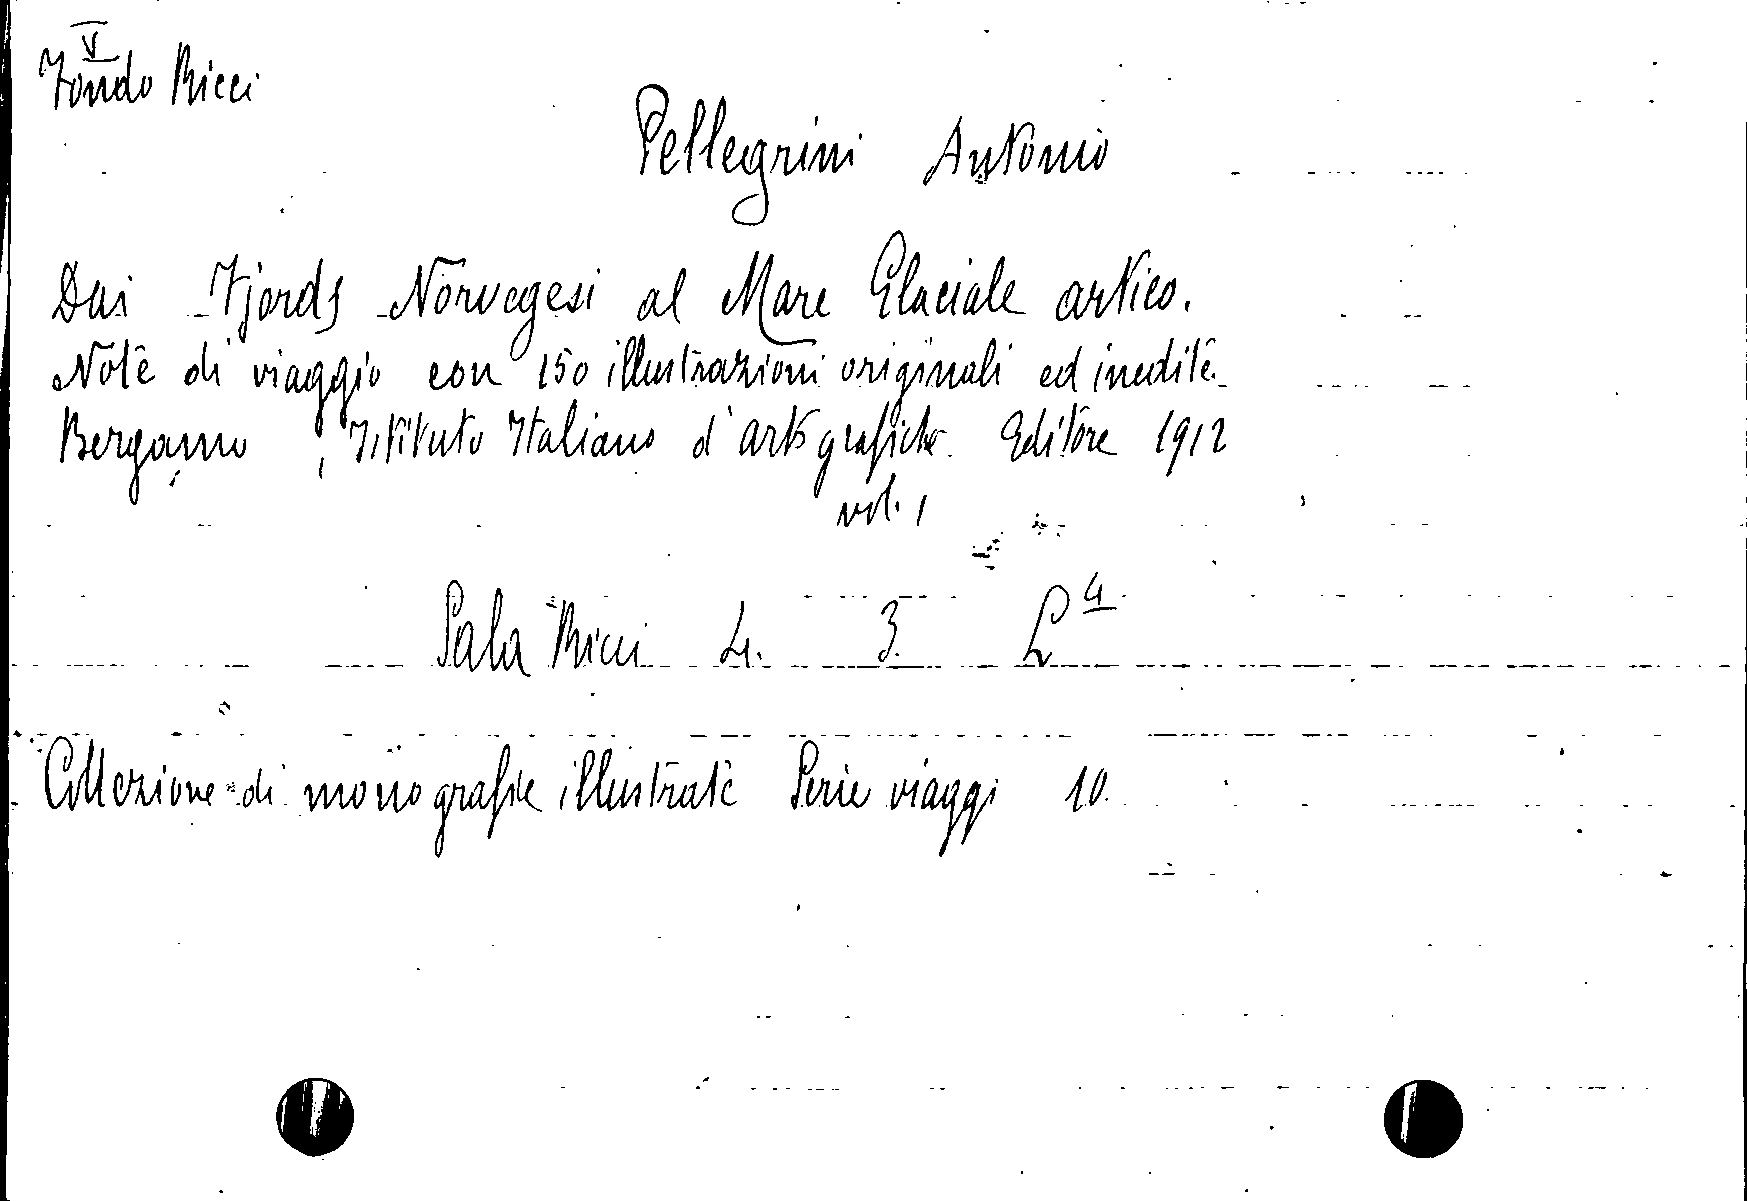 V
Fondo Ricci
Pellegrini Antonio
Dai Fjords Norvegesi al Mare Glaciale artico.
Note di viaggio con 150 illustrazioni originali ed inedite.
Bergamo, Istituto Italiano d'arti grafiche. Editore 1912
vol. 1
Sala Ricci 4. 3. L 4
Collezione di monografie illustrate Serie viaggi 10.